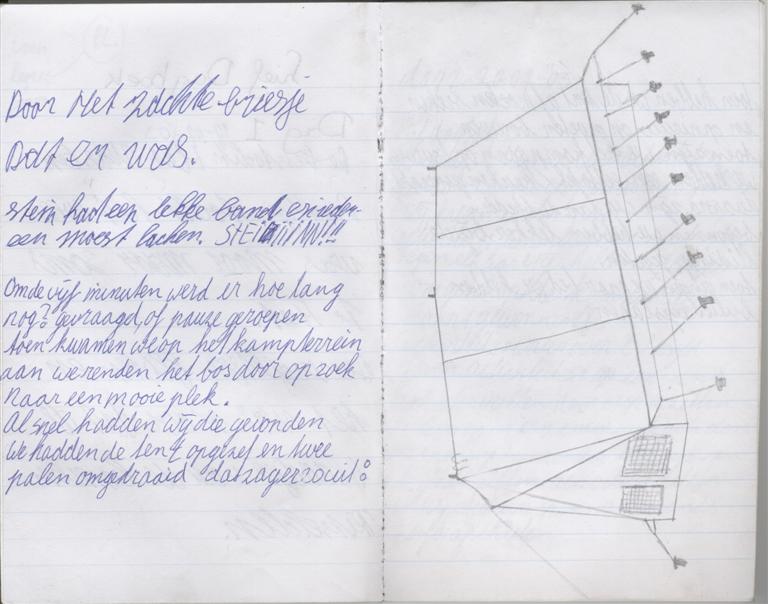 Door het zachte briesje
Dat er was.
stein had een lekke band en ieder-
een moest lachen. STEIIIIIINN!!!
Om de vijf minuten werd er hoe lang
nog? gevraagd, of pauze geroepen
toen kwamen we op het kampterrein
aan we renden het bos door op zoek
Naar een mooie plek.
Al snel hadden wij die gevonden
We hadden de tent opgezet en twee
palen omgedraaid dat zag er zo uit: